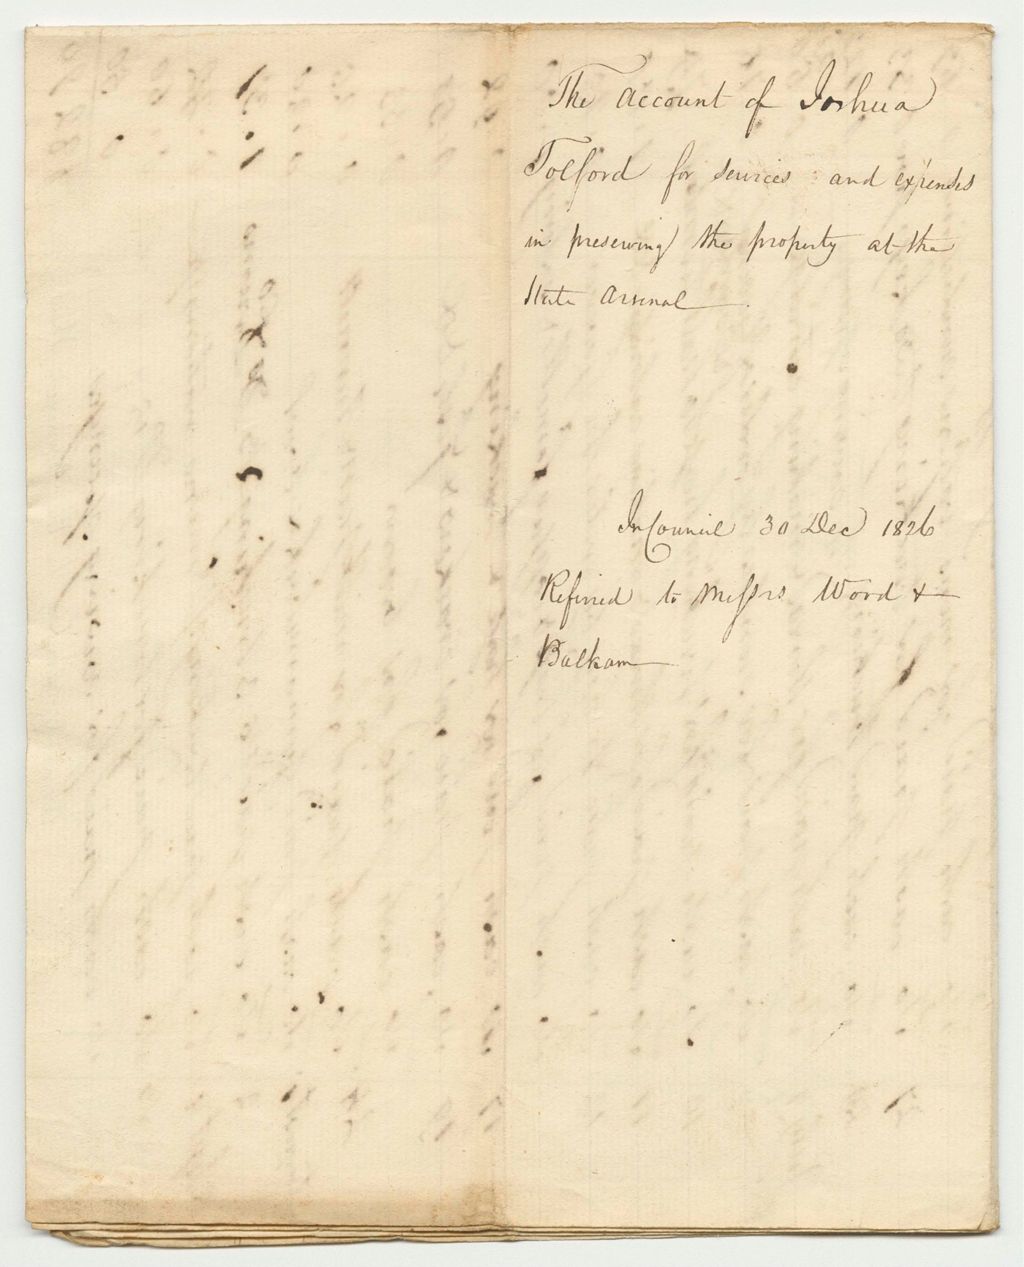 The Account of Joshua
Tolford for services and expenses
in preserving the property at the
State Arsenal
In Council 30 Dec 1826
Referred to Messrs Word &
Balkam